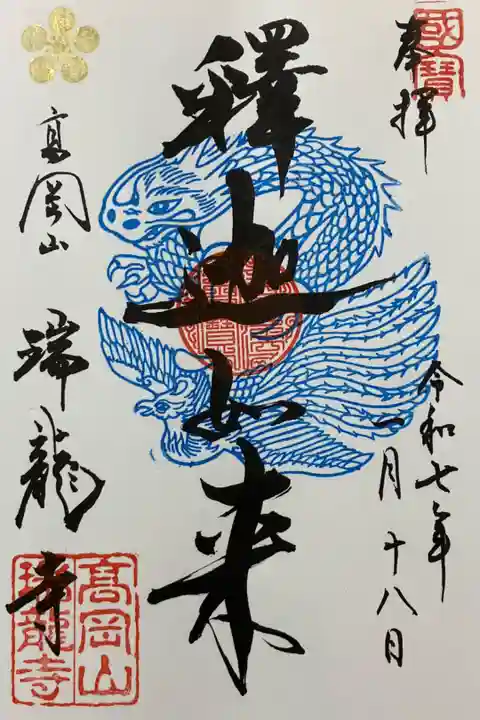 國寶
奉拝
令和七年
一月十八日
釋迦如来
高岡山
瑞龍寺
高岡山
瑞龍寺